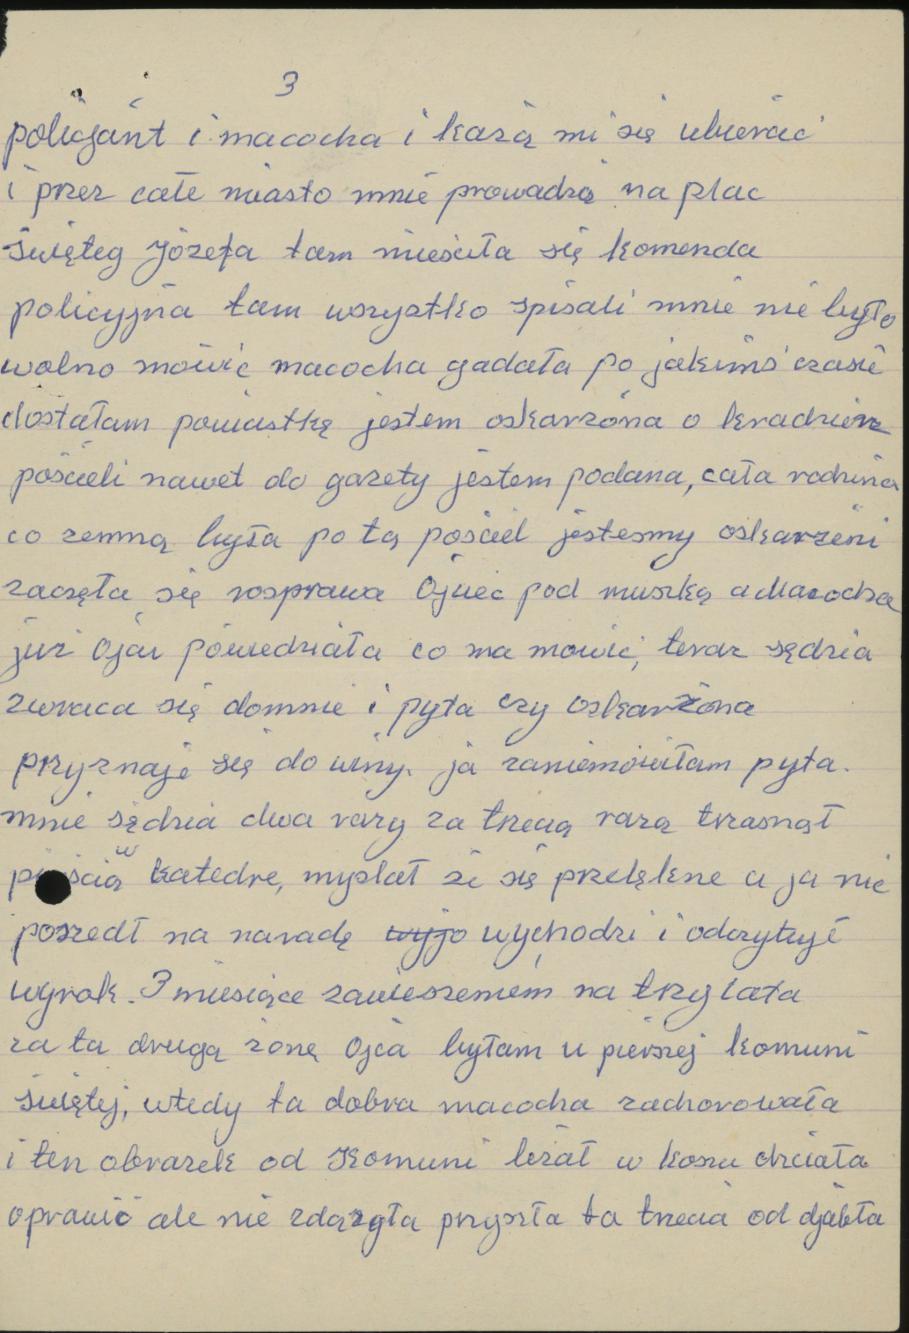 3
policjant i macocha i każą mi się ubierać
i przez całe miasto mnie prowadzą na plac
Święteg Józefa tam mieściła się komenda
policyjna tam wszystko spisali mnie nie było
wolno mówić macocha gadała po jakimś czasie
dostałam powiastkę jestem oskarżóna o kradzierz
pościeli nawet do gazety jestem podana, cała rodzina
co zemną była po tą pościel jestesmy oskarżeni
zaczęła się rosprawa Ojciec pod muszką a Macocha
już Ojcu powiedziała co ma mowić, teraz sędzia
zwraca się domnie i pyta czy oskarżona
przyznaję się do winy. ja zaniemówiłam pyta.
mnie sędzia dwa razy za trzecią razą trzasnął
pięścią w katedre, myslał że się przelękne a ja nie
poszedł na naradę wyjo wychodzi i odczytuje
wyrok. 3 miesiące zawieszeniem na trzy lata
za ta drugą żonę Ojca byłam u pierszej komuni
świętej, wtedy ta dobra macocha zachorowała
i ten obrazek od Komuni leżał w koszu chciała
oprawić ale nie zdążyła przyszła ta trzecia od djabła